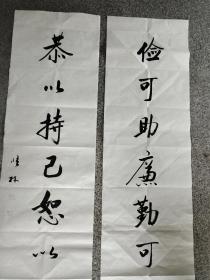 俭可助廉勤可
恭以持己恕以